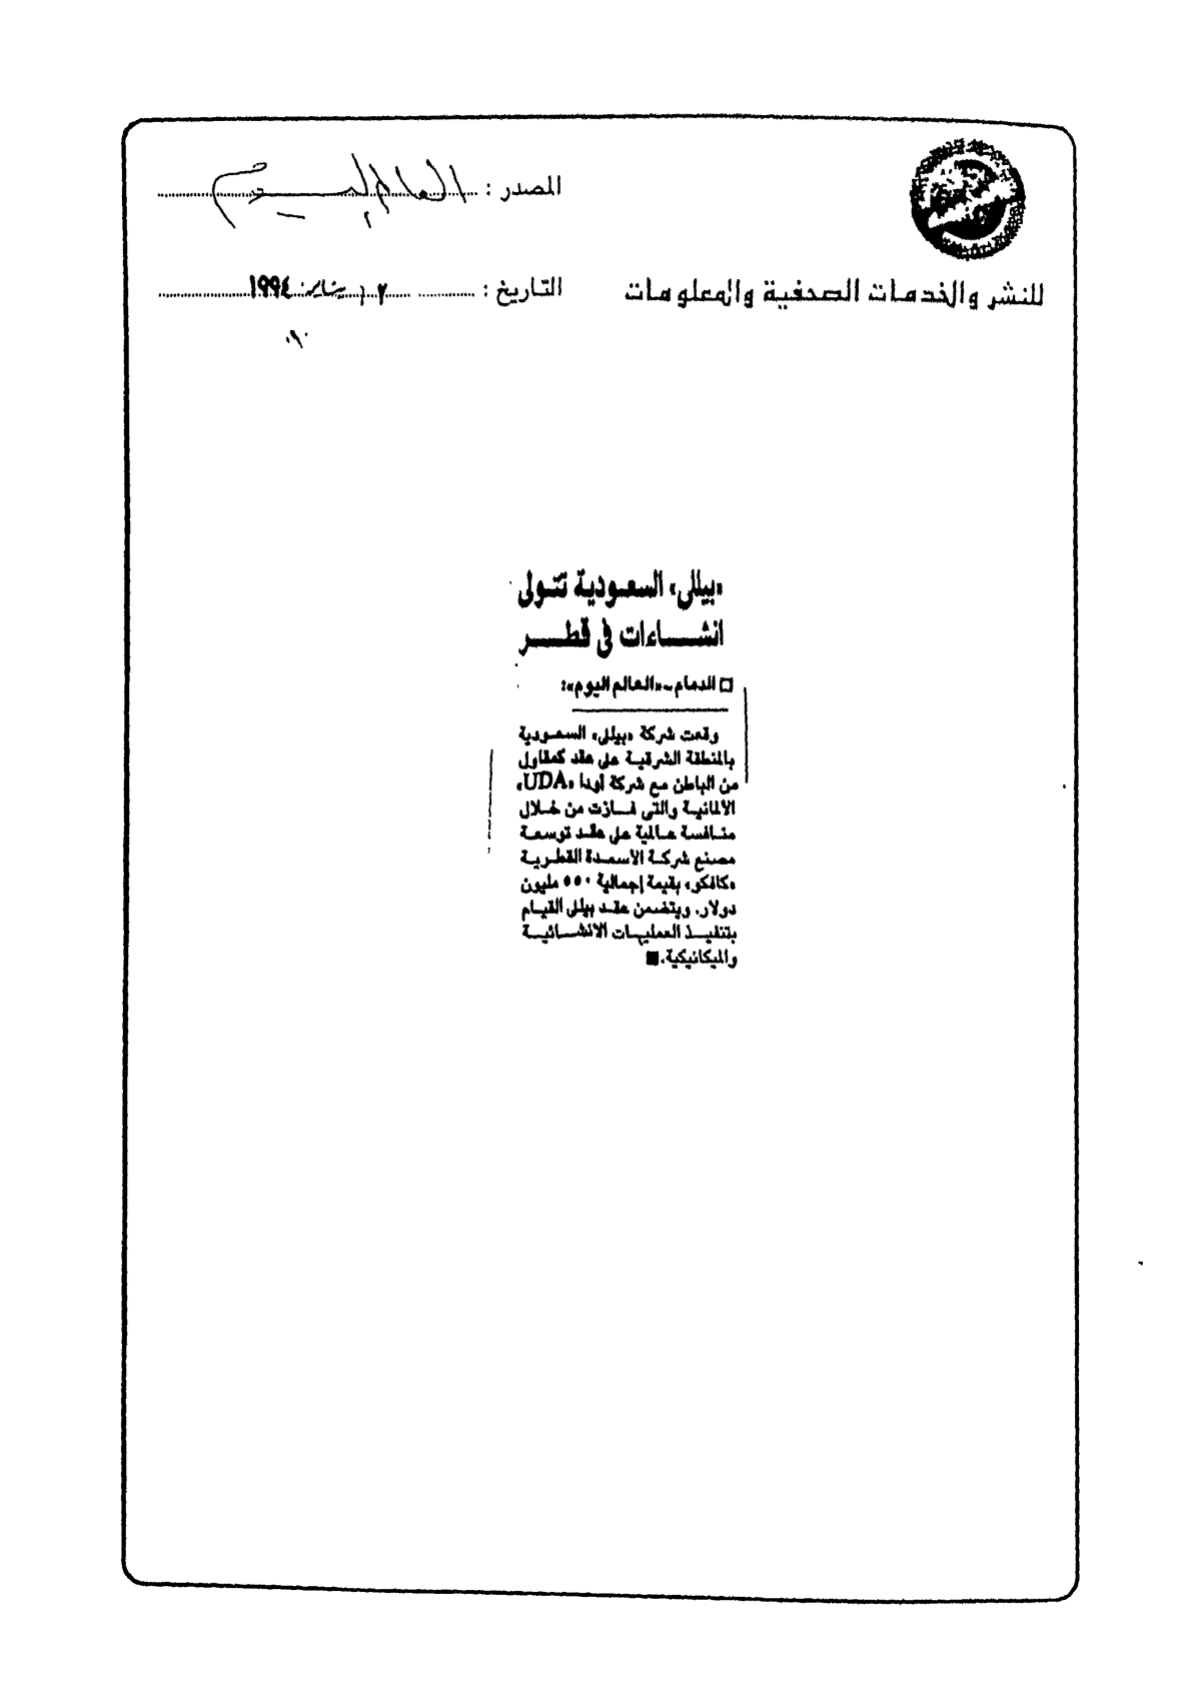 المصدر : العالم اليوم
للنشر والخدمات الصحفية والمعلومات
التاريخ : ٢ يناير ١٩٩٤
«بيللى» السعودية تتولى
انشاءات فى قطر
الدمام ـ «العالم اليوم»:
وقعت شركة «بيللى» السعودية
بالمنطقة الشرقية على عقد كمقاول
من الباطن مع شركة أودا «UDA»
الالمانية والتى فازت من خلال
منافسة عالمية على عقد توسعة
مصنع شركة الاسمدة القطرية
«كافكو» بقيمة إجمالية ٥٥٠ مليون
دولار. ويتضمن عقد بيللى القيام
بتنفيذ العمليات الانشائية
والميكانيكية.